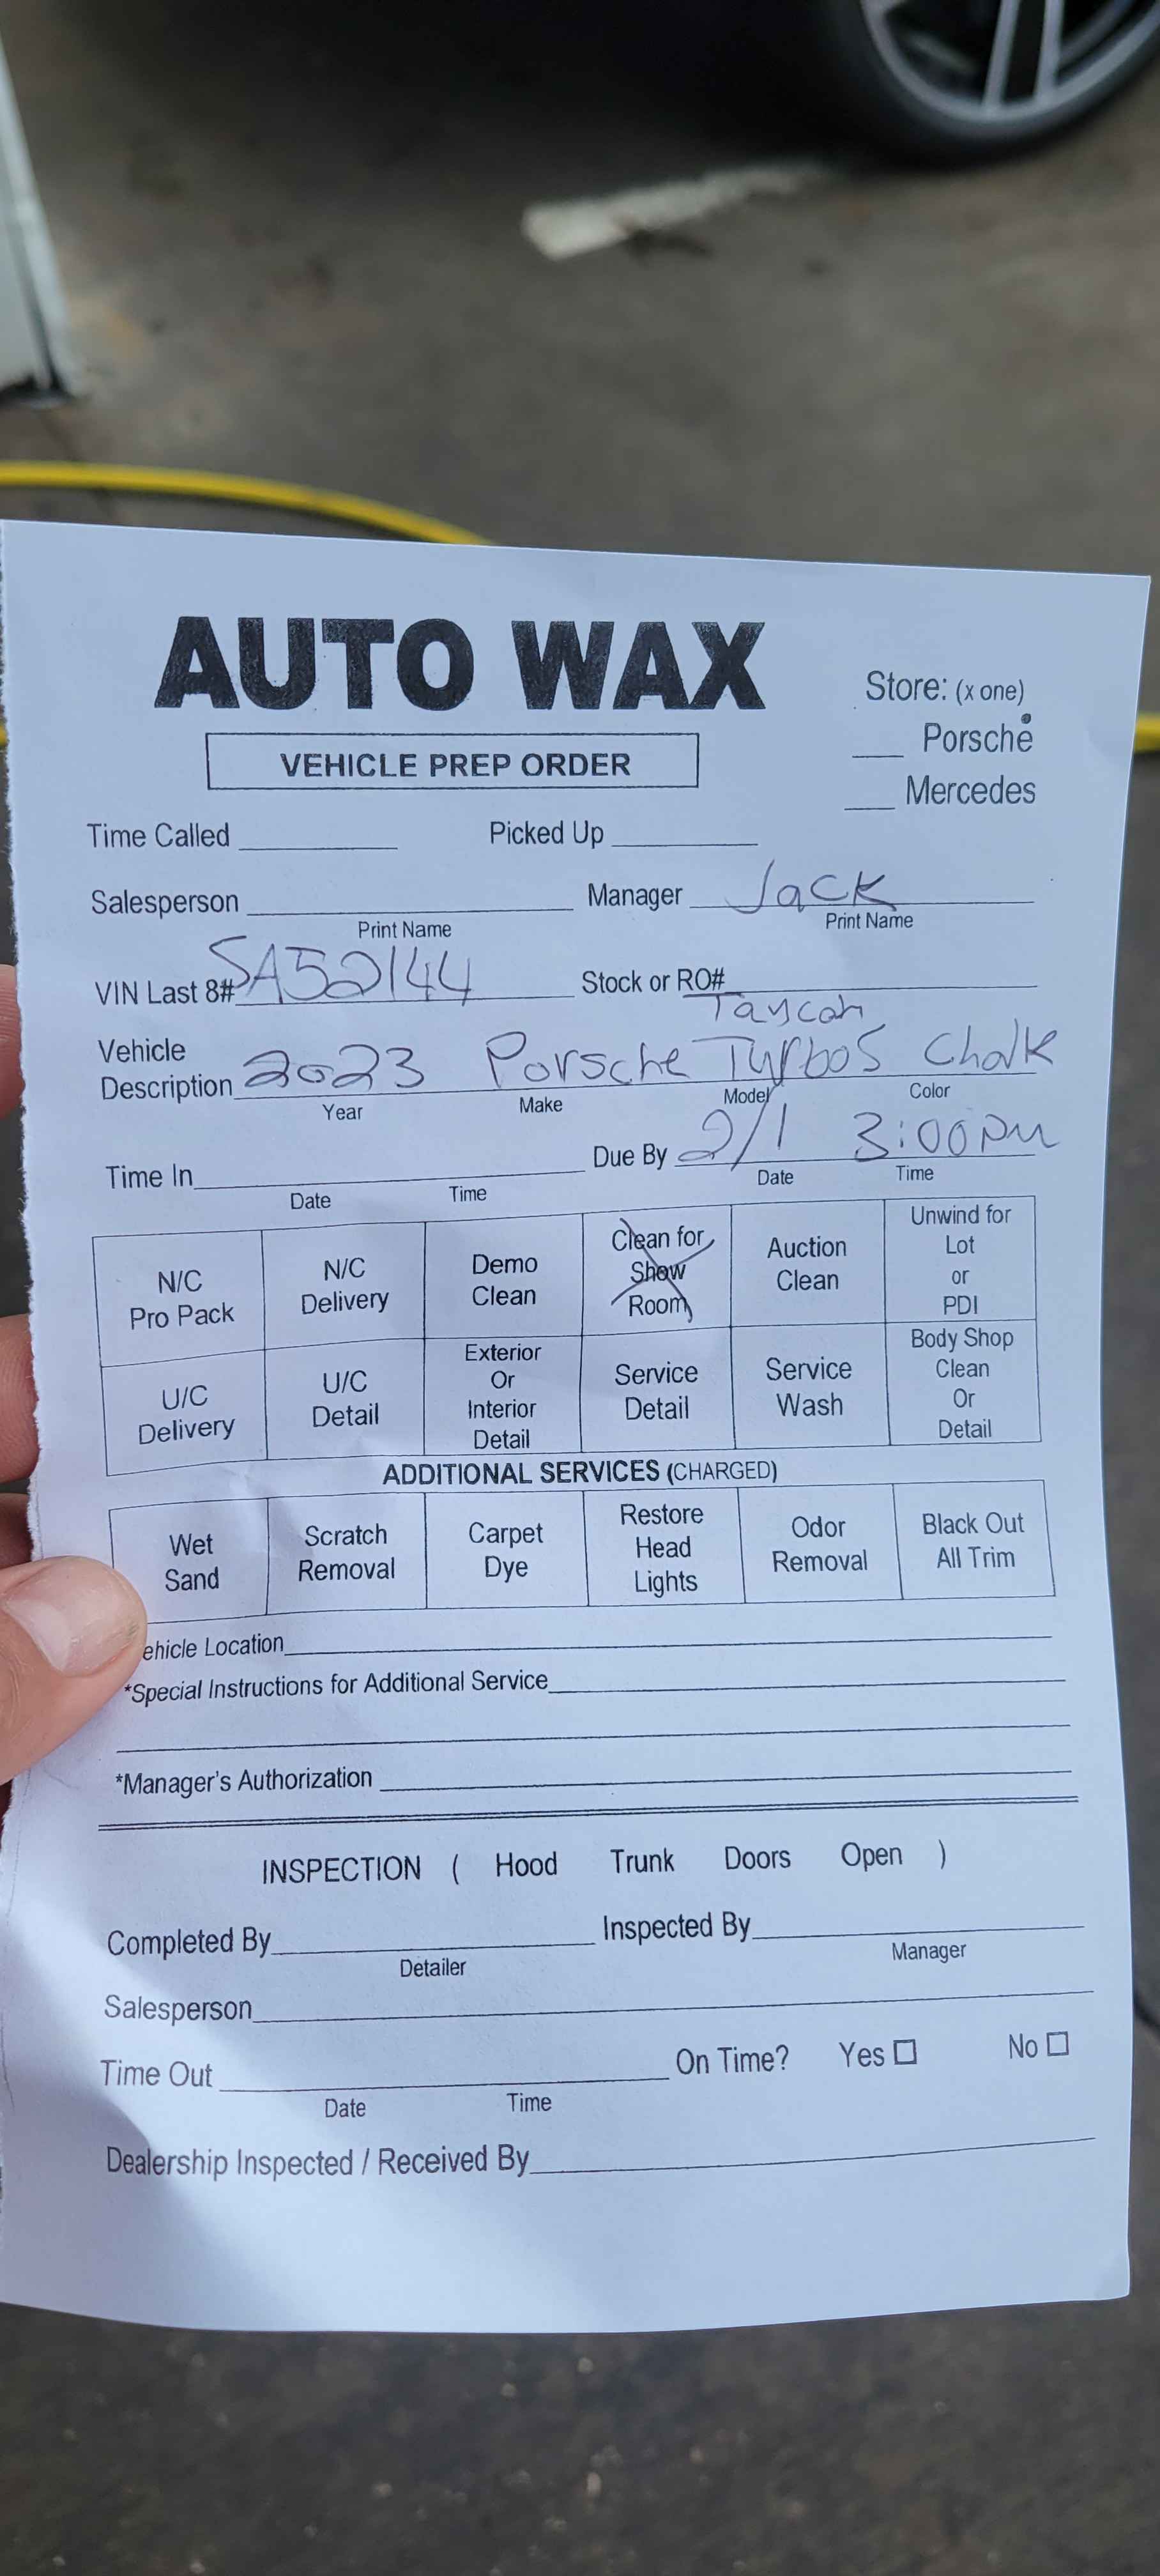 AUTO WAX
Store: (x one)
VEHICLE PREP ORDER
___ Porsche
___ Mercedes
Time Called ___ Picked Up ___
Salesperson ___ Manager Jack
Print Name Print Name
VIN Last 8# SA52144 Stock or RO# ___
Taycan
Vehicle
Description 2023 Porsche Turbo S Chalk
Year Make Model Color
Time In ___ Due By 2/1 3:00 PM
Date Time Date Time
N/C Pro Pack
N/C Delivery
Demo Clean
Clean for Show Room
Auction Clean
Unwind for Lot or PDI
U/C Delivery
U/C Detail
Exterior Or Interior Detail
Service Detail
Service Wash
Body Shop Clean Or Detail
ADDITIONAL SERVICES (CHARGED)
Wet Sand
Scratch Removal
Carpet Dye
Restore Head Lights
Odor Removal
Black Out All Trim
ehicle Location ___
*Special Instructions for Additional Service ___
*Manager's Authorization ___
INSPECTION ( Hood Trunk Doors Open )
Completed By ___ Inspected By ___
Detailer Manager
Salesperson ___
Time Out ___ On Time? Yes ☐ No ☐
Date Time
Dealership Inspected / Received By ___